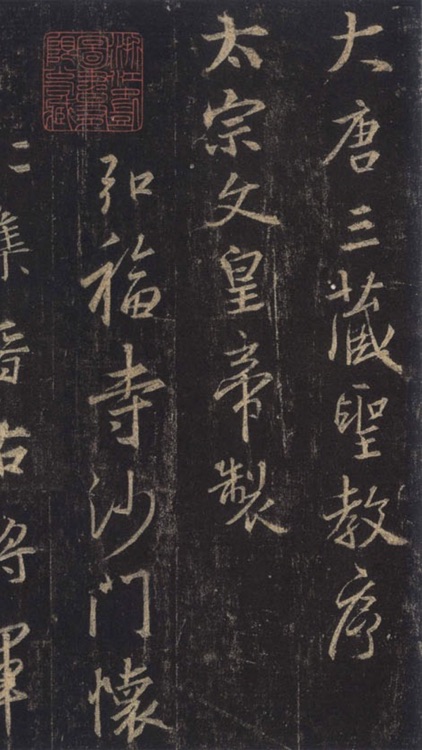 大唐三藏聖教序
太宗文皇帝製
弘福寺沙門懷
仁集晉右將軍